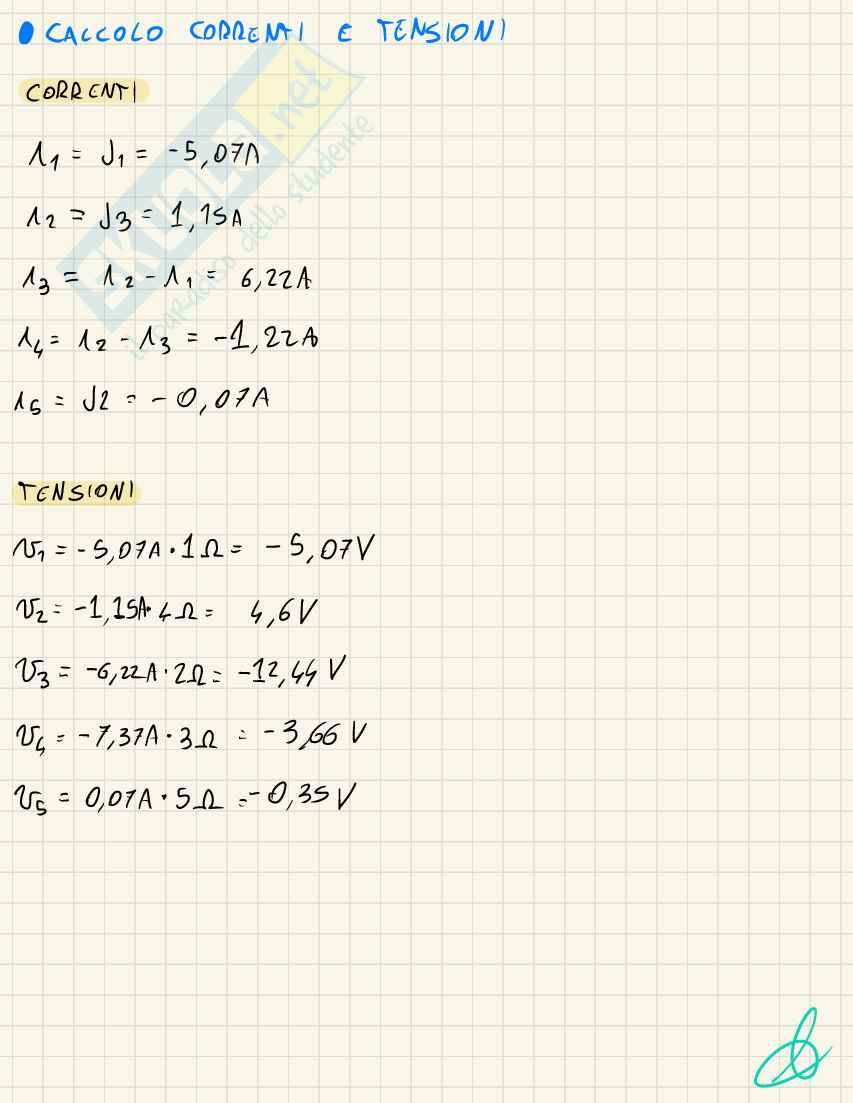 CALCOLO CORRENTI E TENSIONI
CORRENTI
i1 = J1 = -5,07A
i2 = J3 = 1,15A
i3 = i2 - i1 = 6,22A
i4 = i2 - i3 = -1,22A
i5 = J2 = -0,07A
TENSIONI
v1 = -5,07A · 1Ω = -5,07V
v2 = -1,15A · 4Ω = 4,6V
v3 = -6,22A · 2Ω = -12,44 V
v4 = -7,37A · 3Ω = -3,66 V
v5 = 0,07A · 5Ω = -0,35V
SKUOLA.net
il paradiso dello studente